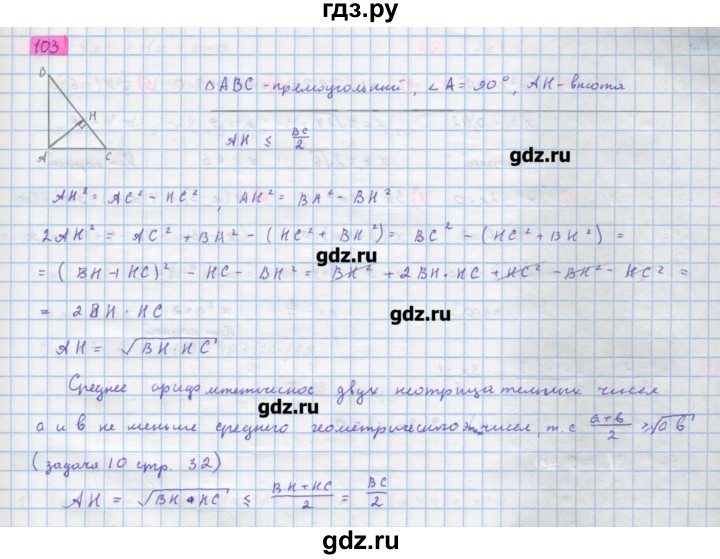 гдз.ру
103
B
H
A
C
△ABC - прямоугольный, ∠A = 90°, AH - высота
AH ≤ BC/2
AH² = AC² - HC², AH² = BA² - BH²
2AH² = AC² + BA² - (HC² + BH²) = BC² - (HC² + BH²) =
= (BH + HC)² - HC - BH² = BH² + 2BH·HC + HC² - BH² - HC² =
= 2BH·HC
AH = √BH·HC
Среднее арифметическое двух неотрицательных чисел
a и b не меньше среднего геометрического этих чисел, т.е (a+b)/2 ≥ √ab
(задача 10 стр. 32)
AH = √BH·HC ≤ (BH+HC)/2 = BC/2
gdz.ru
gdz.ru
gdz.ru
gdz.ru
gdz.ru
gdz.ru
gdz.ru